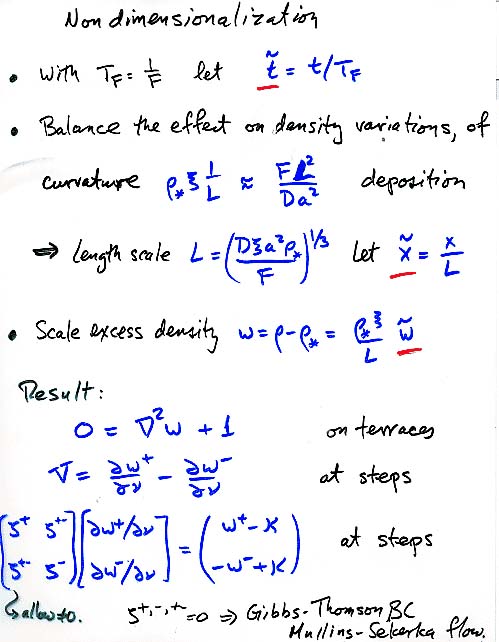 Nondimensionalization
• With T_F = 1/F let t̃ = t/T_F
• Balance the effect on density variations, of
curvature ρ_* ξ 1/L ≈ FL²/Da² deposition
⇒ Length scale L = (Dξa²ρ_*/F)^{1/3} Let x̃ = x/L
• Scale excess density w = ρ-ρ_* = ρ_*ξ/L w̃
Result:
0 = ∇²w + 1 on terraces
V = ∂w⁺/∂ν - ∂w⁻/∂ν at steps
(ζ⁺ ζ⁺⁻ [∂w⁺/∂ν = (w⁺-K at steps
ζ⁺⁻ ζ⁻) ∂w⁻/∂ν] -w⁻+K)
allow to. ζ^{+,-,+-} = 0 ⇒ Gibbs-Thomson BC
Mullins-Sekerka flow.